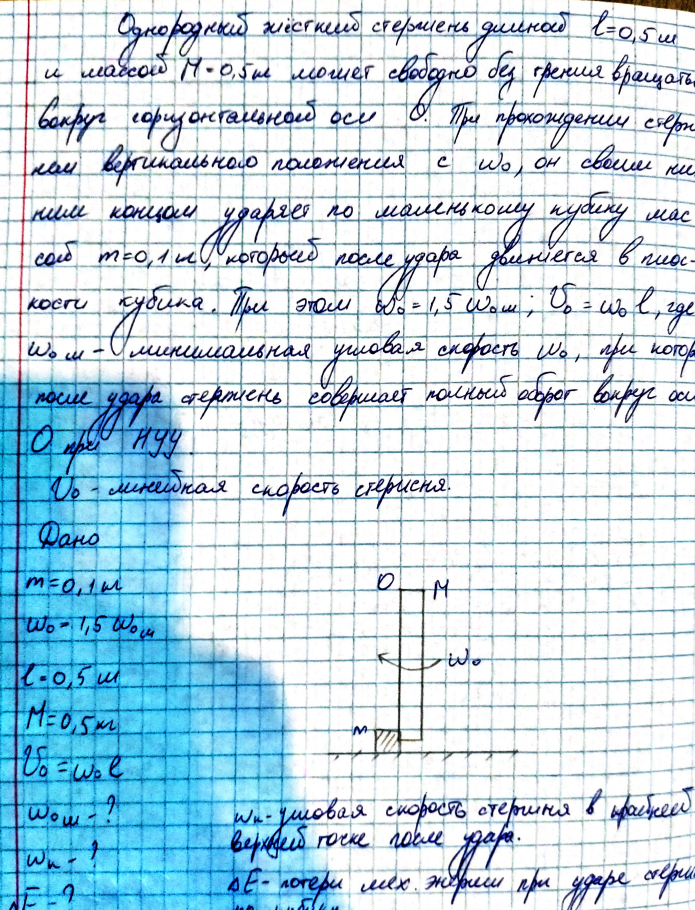 Однородный жёсткий стержень длиной l=0,5 м
и массой M=0,5кг может свободно без трения вращать
вокруг горизонтальной оси O. При прохождении стерж-
нем вертикального положения с ω₀, он своим ни
ним концом ударяет по маленькому кубику мас
сой m=0,1 кг, который после удара движется в плос-
кости кубика. При этом ω₀=1,5 ω₀м; V₀=ω₀l, где
ω₀м - минимальная угловая скорость ω₀, при котор
после удара стержень совершает полный оборот вокруг ос
O при НУУ.
V₀ - линейная скорость стержня.
Дано
m=0,1 кг
ω₀=1,5 ω₀м
l=0,5 м
M=0,5кг
V₀=ω₀l
ω₀м-?
ωк-?
ΔE-?
O M
ω₀
m
ωк-угловая скорость стержня в крайней
верхней точке после удара.
ΔE-потери мех. энергии при ударе стерж